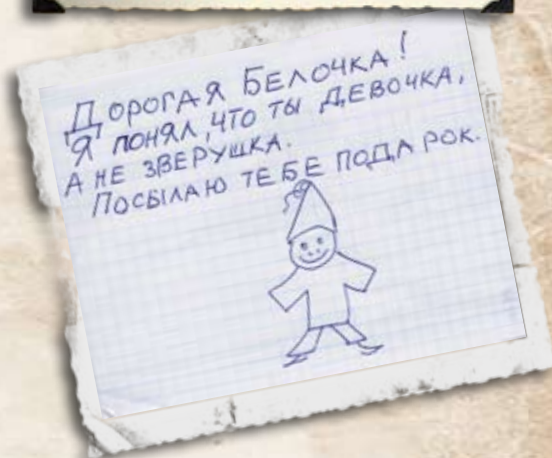 ДОРОГАЯ БЕЛОЧКА!
Я ПОНЯЛ, ЧТО ТЫ ДЕВОЧКА,
А НЕ ЗВЕРУШКА.
ПОСЫЛАЮ ТЕБЕ ПОДАРОК.